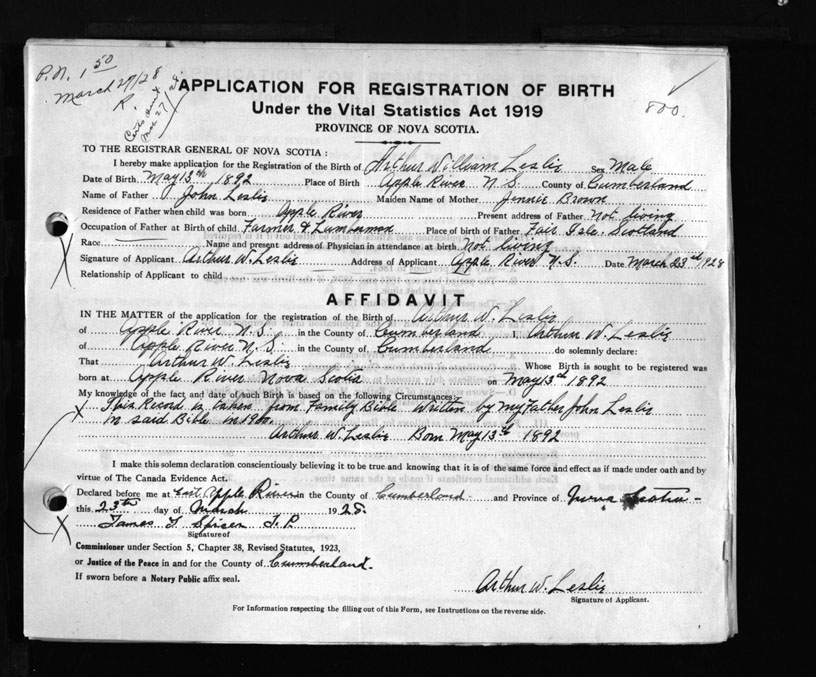 P.N. 1 50
March 27/28
R.
Mar 27
800.
APPLICATION FOR REGISTRATION OF BIRTH
Under the Vital Statistics Act 1919
PROVINCE OF NOVA SCOTIA.
TO THE REGISTRAR GENERAL OF NOVA SCOTIA:
I hereby make application for the Registration of the Birth of Arthur William Leslie Sex Male
Date of Birth May 13th 1892 Place of Birth Apple River N.S. County of Cumberland
Name of Father John Leslie Maiden Name of Mother Jennie Brown
Residence of Father when child was born Apple River Present address of Father Not living
Occupation of Father at Birth of child Farmer & Lumberman Place of birth of Father Fair Isle. Scotland
Race Name and present address of Physician in attendance at birth Not living
Signature of Applicant Arthur W. Leslie Address of Applicant Apple River N.S. Date March 23rd 1928
Relationship of Applicant to child
AFFIDAVIT
IN THE MATTER of the application for the registration of the Birth of Arthur W. Leslie
of Apple River N.S. in the County of Cumberland I, Arthur W. Leslie
of Apple River N.S. in the County of Cumberland do solemnly declare:
That Arthur W. Leslie Whose Birth is sought to be registered was
born at Apple River Nova Scotia on May 13th 1892
My knowledge of the fact and date of such Birth is based on the following Circumstances:
X This Record is taken from Family Bible Written by My Father John Leslie
in said Bible in 1900.
Arthur W. Leslie Born May 13th 1892
I make this solemn declaration conscientiously believing it to be true and knowing that it is of the same force and effect as if made under oath and by
virtue of The Canada Evidence Act.
Declared before me at Apple River in the County of Cumberland and Province of Nova Scotia
this 23rd day of March 1928.
X James Spicer J.P.
Signature of
Commissioner under Section 5, Chapter 38, Revised Statutes, 1923,
or Justice of the Peace in and for the County of Cumberland.
If sworn before a Notary Public affix seal.
Arthur W. Leslie
Signature of Applicant.
For Information respecting the filling out of this Form, see Instructions on the reverse side.